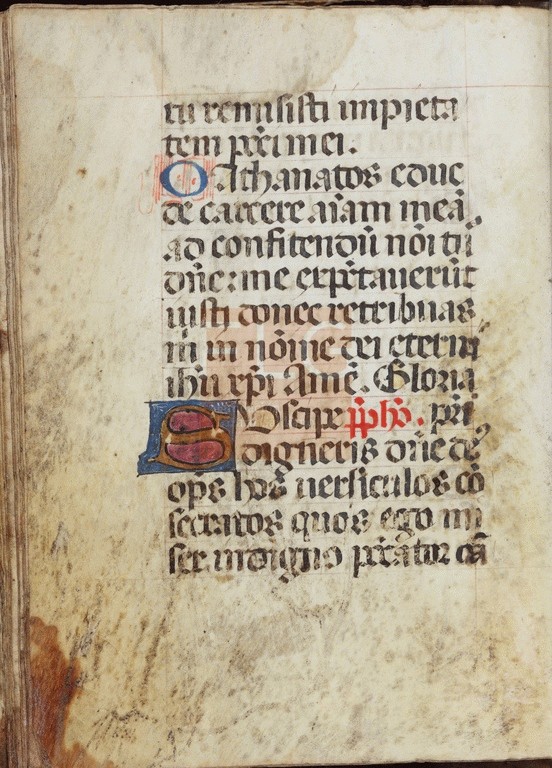 tu remisisti impieta
tem pcti mei.
O Athanatos educ
de carcere aiam meā
ad confitendū nōi tū
dn̄e: me expectauerūt
iusti donec retribuas
m̄ in nōīe dei eterni
ihū xp̄i Amē. Gloria
SUscipe pphs. pri
digneris dn̄e de
op̄s hos uersiculos cō
secratos quos ego mi
ser indigno pctator cā